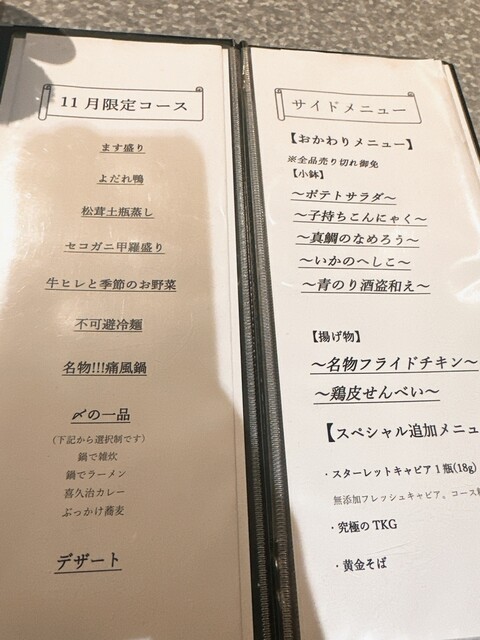 11月限定コース
ます盛り
よだれ鴨
松茸土瓶蒸し
セコガニ甲羅盛り
牛ヒレと季節のお野菜
不可避冷麺
名物!!!痛風鍋
〆の一品
(下記から選択制です)
鍋で雑炊
鍋でラーメン
喜久治カレー
ぶっかけ蕎麦
デザート
サイドメニュー
【おかわりメニュー】
※全品売り切れ御免
【小鉢】
～ポテトサラダ～
～子持ちこんにゃく～
～真鯛のなめろう～
～いかのへしこ～
～青のり酒盗和え～
【揚げ物】
～名物フライドチキン～
～鶏皮せんべい～
【スペシャル追加メニュ
・スターレットキャビア1瓶(18g)
無添加フレッシュキャビア。コース
・究極のTKG
・黄金そば